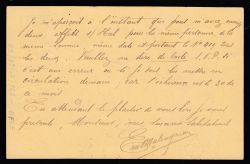 Je m'aperçois à l'instant que vous m'avez remis
deux effets s/ Hal pour la même personne, de la
même somme, même date et portant le N° 411 sur
les deux. Veuillez me dire, de suite, s.v.p. si
c'est une erreur ou si je dois les mettre en
circulation demain, car l'échéance est le 30 de
ce mois.
En attendant le plaisir de vous lire je vous
présente, Monsieur, mes sincères salutations